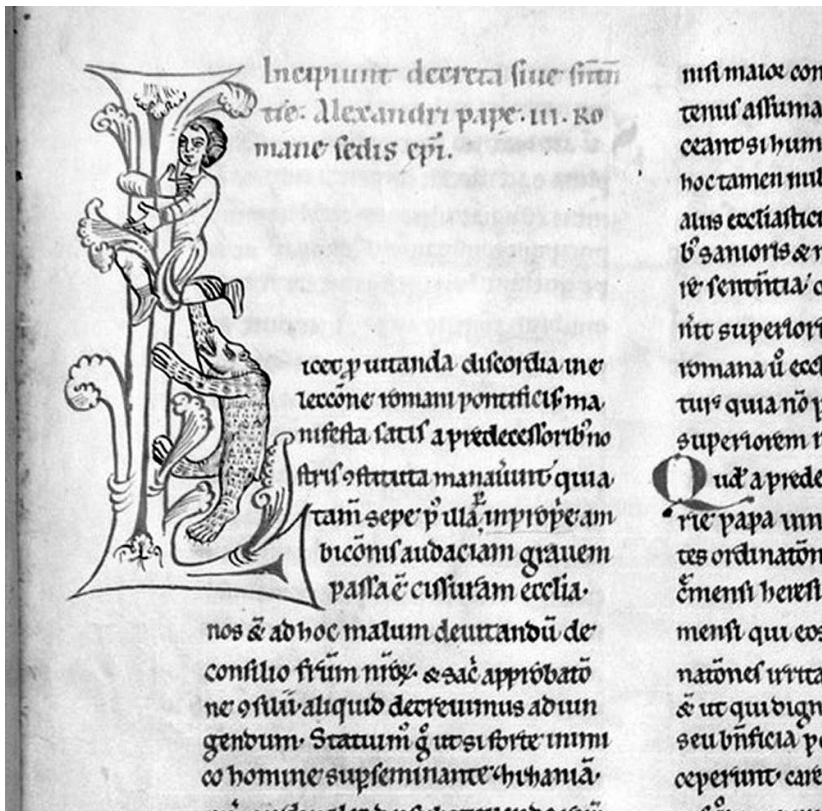 Incipiunt decreta siue sn̄tn
tie. Alexandri pape. iii. Ro
mane sedis ep̄i.
Licet ꝑ uitanda discordia ine
leccōne romani pontificis ma
nifesta satis a predecessorib᷒ no
stris ꝯstituta manau̓unt quia
tam̄ sepe p᷒ illa in prop̄e am
bicōnis audaciam grauem
passa ē cissuram ecclia.
nos &̄ ad hoc malum deuitandū de
consilio fr̄um nr̄oꝝ. & sac̓ approbatō
ne ꝯsiliī. aliquid decreuimus adiun
gendum. Statuim᷒ g̊ ut si forte inimi
co homine suꝑseminante zizaniā.
nisi maior con
tenus assuma
ceant si hum
hoc tamen nul
aliis eccliastic
b᷒ sanioris &
re sentn̄tia
rit superiori
romana u̓ eccl
tur᷒ quia nō p
superiorem
Quod a prede
rie papa inn
tes ordinatōn
c̄mensi heresi
mensi qui eos
natōnes irrita
&̄ ut qui dign
seu bn̄ficia ꝑ
ceperunt. care